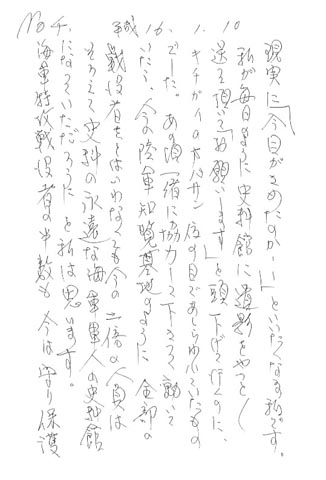 No 4. 職 16. 1. 10
現実に「今目がさめたのか…」といいたくなる私です。
私が毎日のように史料館に遺影をやっとし
送って頂いて「お願いします」と頭下げて行くのに、
キチガイのオバサン位の目であしらわれていたもの
でした。あの頃一緒に協力して下さって動いて
いたら、今の陸軍知覧基地のように全部の
戦没者とはいわなくても今の二倍の人員は
そろえて史料の永遠な海軍軍人の史料館
になっていただろうに と私は思います。
海軍特攻戦没者の半数も今は守り保護